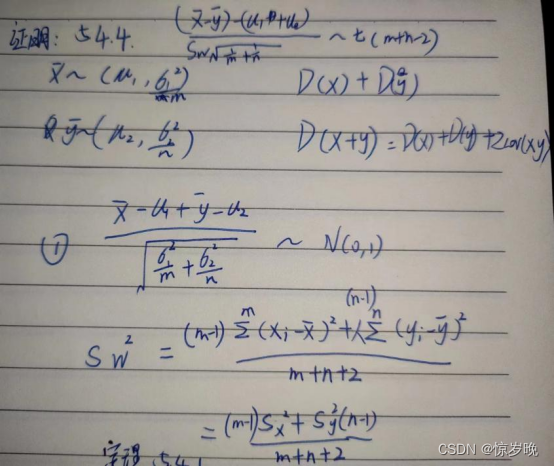 证明: 5.4.4. ((x̄-ȳ)-(u₁+u₂))/(Sw√(1/m+1/n)) ~ t(m+n-2)
x̄~(u₁, σ₁²/m) D(x)+D(y)
ȳ~(u₂, σ₂²/n) D(x+y)=D(x)+D(y)+2cov(xy)
① (x̄-u₁+ȳ-u₂)/√(σ₁²/m+σ₂²/n) ~ N(0,1)
(n-1)
Sw² = ((m-1)Σᵐ(xᵢ-x̄)²+Σⁿ(yᵢ-ȳ)²)/(m+n+2)
= ((m-1)Sx²+Sy²(n-1))/(m+n+2)
定理 5.4.1
CSDN @惊岁晚